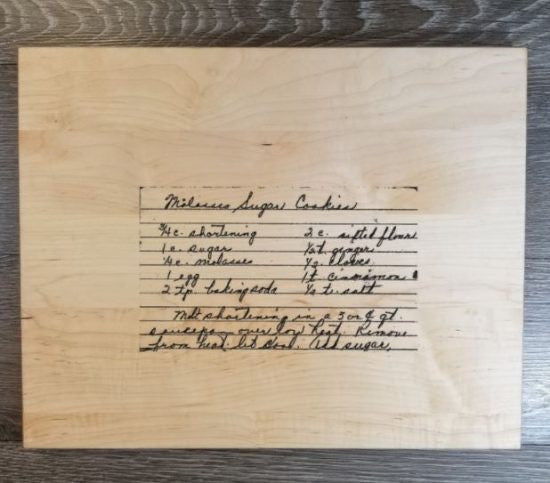 Molasses Sugar Cookies
3/4 c. shortening 2 c. sifted flour
1 c. sugar 1/2 t. ginger
1/4 c. molasses 1/2 cloves
1 egg 1 t cinnamon
2 tsp. baking soda 1/2 t. salt
Melt shortening in a 3 or 4 qt.
saucepan over low heat. Remove
from heat let cool. Add sugar,